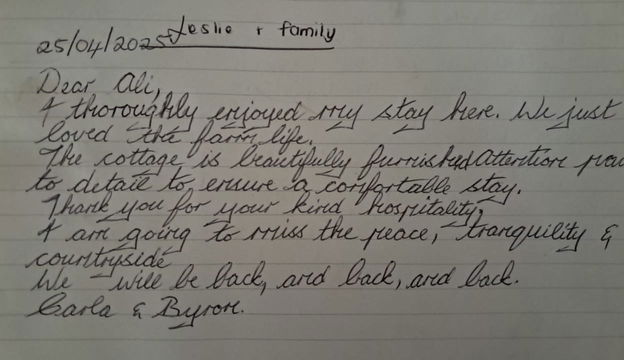 Leslie + family
25/04/2025
Dear Ali,
I thoroughly enjoyed my stay here. We just
loved the farm life.
The cottage is beautifully furnished. Attention
to detail to ensure a comfortable stay.
Thank you for your kind hospitality,
I am going to miss the peace, tranquility &
countryside
We will be back, and back, and back.
Carla & Byron.